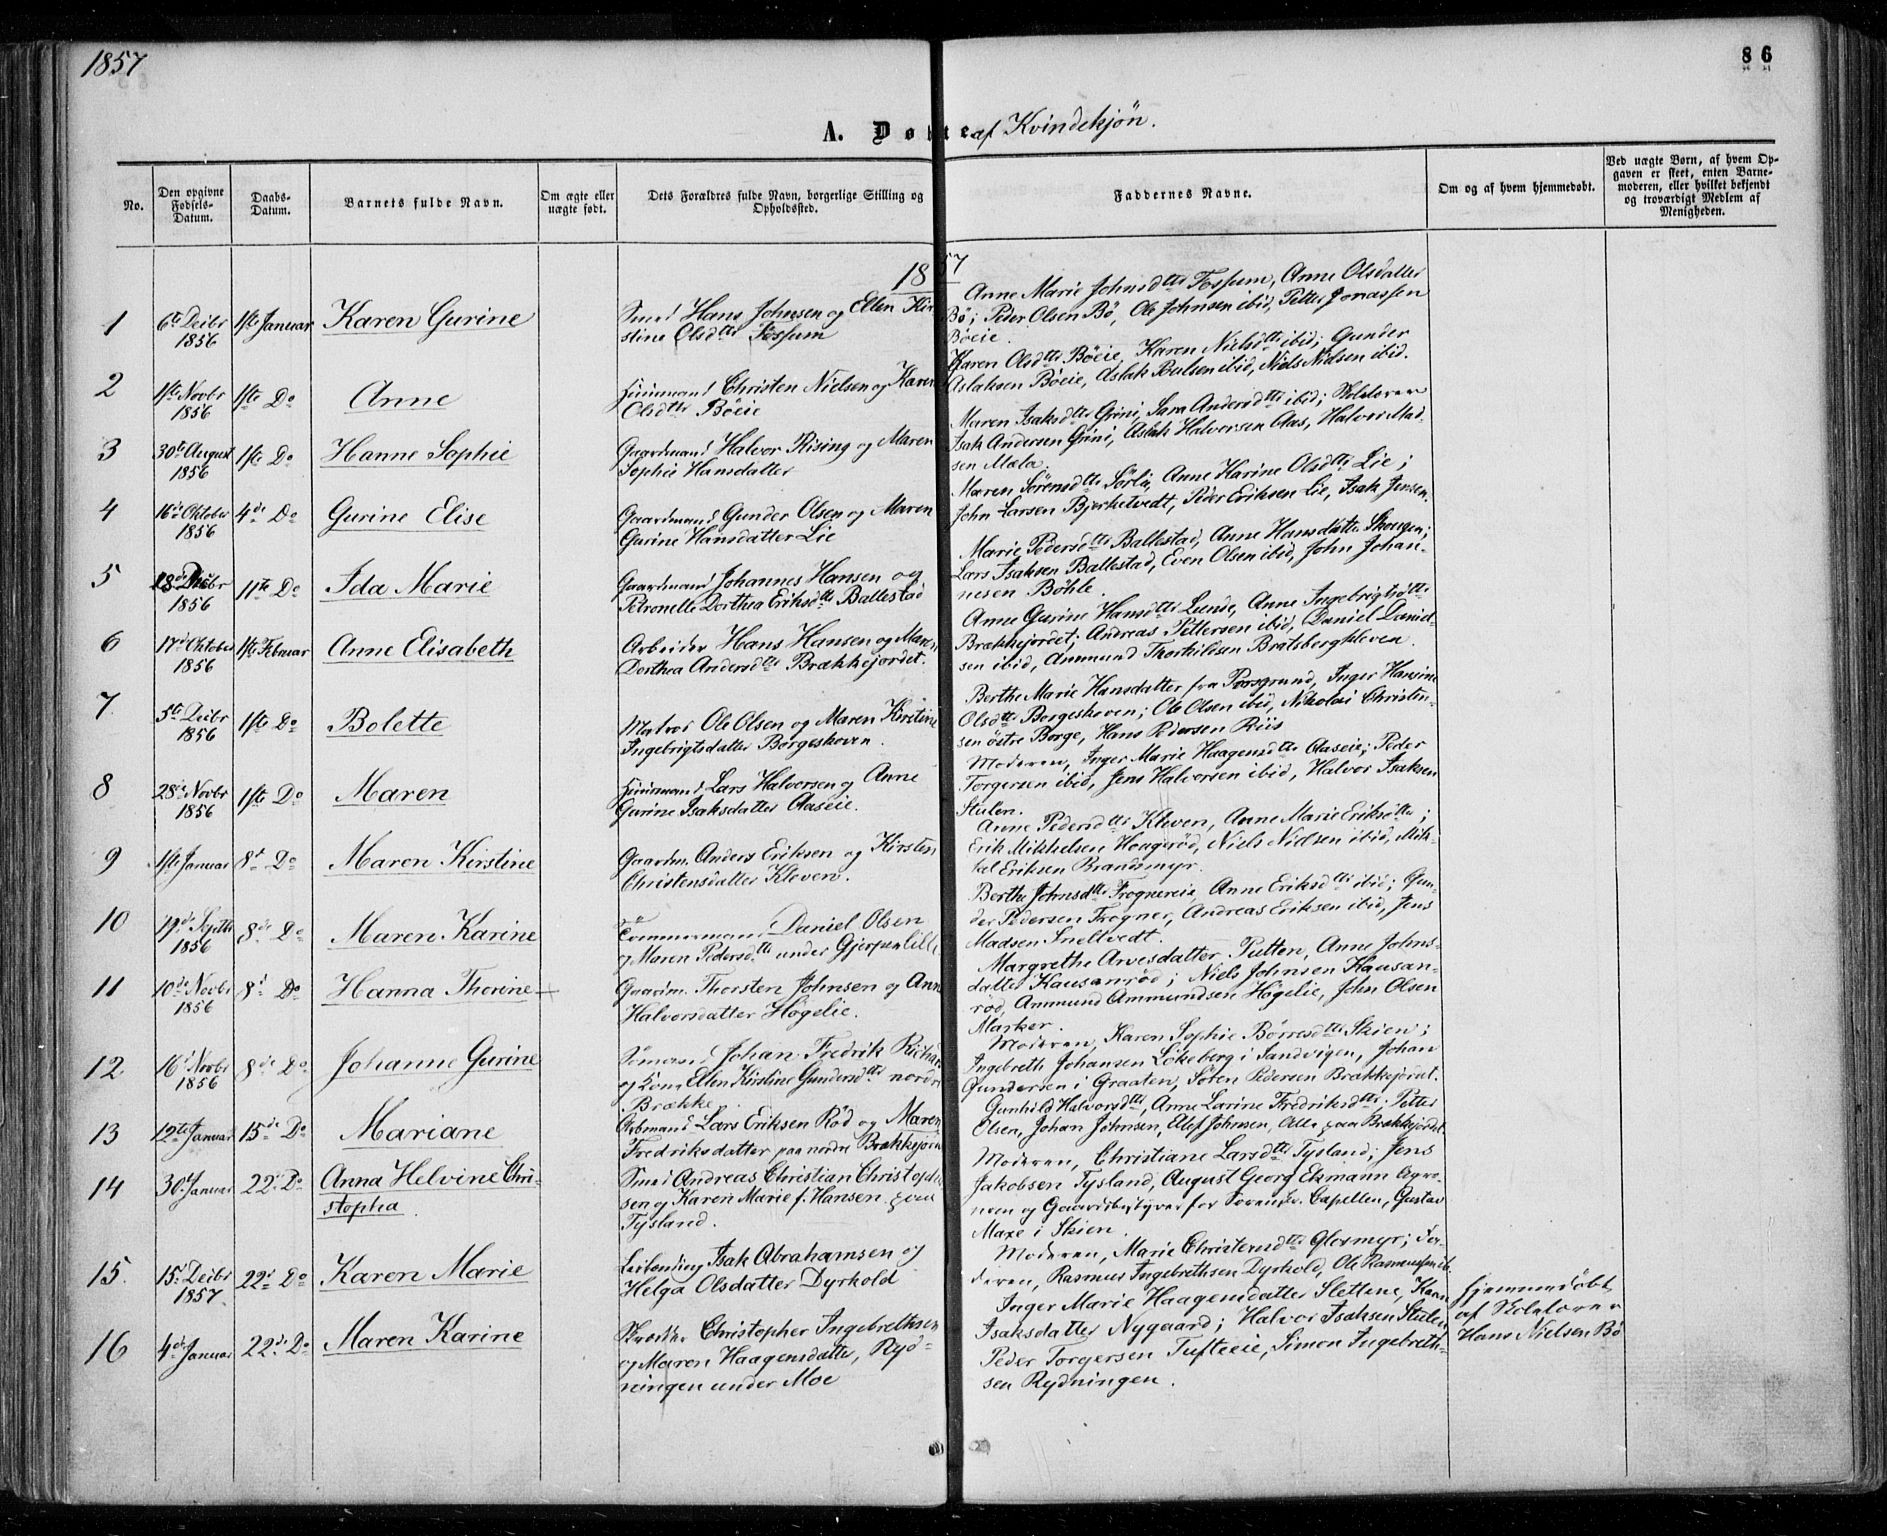 1857
86
A. Døbte af Kvindekjön.
No.
Den opgivne Fødsels-Datum.
Daabs-Datum.
Barnets fulde Navn.
Om ægte eller uægte født.
Dets Forældres fulde Navn, borgerlige Stilling og Opholdssted.
Faddernes Navne.
Om og af hvem hjemmedøbt.
Ved uægte Børn, af hvem Opgaven er skeet, enten Barnemoderen, eller hvilket bekjendt og troværdigt Medlem af Menigheden.
1857
1
6te Decbr 1856
1ste Januar
Karen Gurine
Smed Hans Johnsen og Ellen Kir-
stine Olsdtr Fossum
Anne Marie Johnsdtr Fossum, Anne Olsdatter
Bö; Peder Olsen Bö, Ole Johnsen ibid, Petter Jonassen
Böeie.
2
1ste Novbr 1856
1ste Do
Anne
Huusmand Christen Nielsen og Karen
Olsdtr Böeie
Karen Olsdtr Böeie, Karen Nielsdtr ibid; Gunder
Aslaksen Böeie, Aslak Poulsen ibid, Niels Nielsen ibid.
3
30te August 1856
1ste Do
Hanne Sophie
Gaardmand Halvor Rising og Maren
Sophie Hansdatter
Maren Isaksdtr Grini, Sara Andersdtr ibid; Skolelærer
Isak Andersen Grini, Aslak Halvorsen Aas, Halvor Mad-
sen Mæla.
4
16de Oktober 1856
4de Do
Gurine Elise
Gaardmand Gunder Olsen og Maren
Gurine Hansdatter Lie
Maren Sörensdtr Sörli, Anne Karine Olsdtr Lie;
John Larsen Bjerketvedt, Peder Eriksen Lie, Isak Jensen.
5
18de Decbr 1856
11te Do
Ida Marie
Gaardmand Johannes Hansen og
Petronelle Dorthea Eriksdtr Ballestad
Marie Pedersdtr Ballestad, Anne Hansdatter Skougen;
Lars Isaksen Ballestad, Even Olsen ibid, John Johan-
nesen Böhle.
6
17de Oktober 1856
1ste Februar
Anne Elisabeth
Arbeider Hans Hansen og Maren
Dorthea Andersdtr Brækkejordet.
Anne Gurine Hansdtr Lunde, Anne Ingebrigtsdtr
Brækkejordet; Andreas Pettersen ibid, Daniel Daniel-
sen ibid, Ammund Thorkildsen Bratsbergkleven.
7
5te Decbr 1856
1ste Do
Bolette
Matros Ole Olsen og Maren Kirstine
Ingebrigtsdatter Borgeskoven.
Berthe Marie Hansdatter fra Porsgrund, Inger Hansine
Olsdtr Borgeskoven; Ole Olsen ibid, Nikolai Christen-
sen östre Borge, Hans Pedersen Riis
8
28de Novbr 1856
1ste Do
Maren
Huusmand Lars Halvorsen og Anne
Gurine Isaksdatter Aaseie.
Moderen, Inger Marie Haagensdtr Aaseie; Peder
Torgersen ibid, Jens Halvorsen ibid, Halvor Isaksen
Stulen.
9
1ste Januar
8de Do
Maren Kirstine
Gaardm. Anders Eriksen og Kirsten
Christensdatter Kleven.
Anne Pedersdtr Kleven, Anne Marie Eriksdtr;
Erik Mikkelsen Haageröd, Niels Nielsen ibid, Mik-
kel Eriksen Brandsmyr.
10
19de Septbr 1856
8de Do
Maren Karine
Tömmermand Daniel Olsen
og Maren Pedersdtr under Gjerpen lille
Berthe Johnsdtr Frognereie, Anne Eriksdtr ibid; Gun-
der Pedersen Frogner, Andreas Eriksen ibid, Jens
Madsen Snelltvedt.
11
10de Novbr 1856
8de Do
Hanna Thorine
Gaardm. Thorsten Johnsen og Anne
Halvorsdatter Högelie.
Margrethe Arvesdatter Putten, Anne Johns-
datter Kausanröd; Niels Johnsen Kausan-
röd, Ammund Ammundsen Högelie, John Olsen
Marker.
12
16de Novbr 1856
8de Do
Johanne Gurine
Sömand Johan Fredrik Richard
og Kone Ellen Kirstine Gundersdtr nordre
Brække
Moderen, Karen Sophie Börresdtr Skien;
Ingebreth Johansen Lökeberg i Sandvigen, Johan
Gundersen i Graaten, Sören Pedersen Brækkejordet.
13
12te Januar
15de Do
Mariane
Arbmand Lars Eriksen Röd og Maren
Fredriksdatter paa nordre Brækkejordet
Gunhild Halvorsdtr, Anne Larine Fredriksdtr; Petter
Olsen, Johan Johnsen, Alef Johnsen, Alle paa Brækkejordet.
14
30te Januar
22de Do
Anna Helvine Chri-
stopha.
Smed Andreas Christian Christopher-
sen og Karen Marie f. Hansen paa
Tysland.
Moderen, Christiane Larsdtr Tysland; Jens
Jakobsen Tysland, August Georg Ekmann Agro-
nom og Gaardsbestyrer for Capellen, Gustav
Maxe i Skien.
15.
15de Decbr 1857.
22de Do
Karen Marie
Leilending Isak Abrahamsen og
Helga Olsdatter Dyrkold
Moderen, Marie Christensdtr Glosmyr; Fa-
deren, Rasmus Ingebrethsen Dyrkold, Ole Rasmussen ib.
16
4de Januar
22de Do
Maren Karine
Skrædder Christopher Ingebrethsen
og Maren Haagensdatter, Ryd-
ningen under Moe
Inger Marie Haagensdatter Slettene, Karen
Isaksdatter Nygaard; Halvor Isaksen Stulen,
Peder Torgersen Tufteeie, Simon Ingebreth-
sen Rydningen.
Hjemmedöbt
af Skolelærer
Hans Nielsen Bö